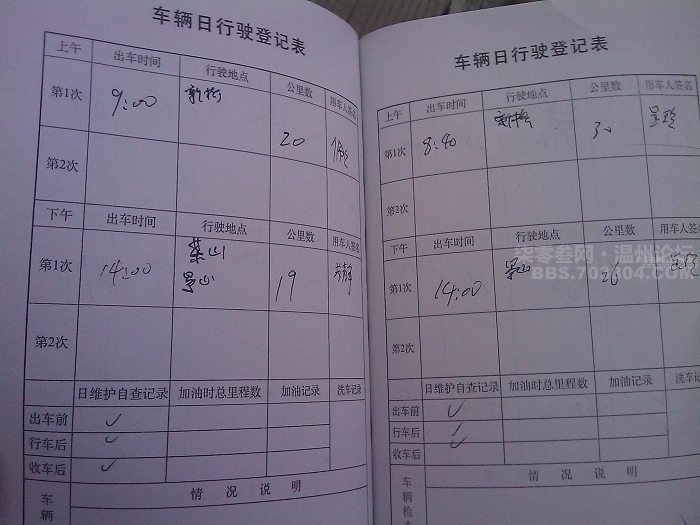 车辆日行驶登记表
上午 出车时间 行驶地点 公里数 用车人签名
第1次 9:00 新桥 20
第2次
下午 出车时间 行驶地点 公里数 用车人签名
第1次 14:00 茶山 19
景山
第2次
日维护自查记录 加油时总里程数 加油记录 洗车记录
出车前 ✓
行车后 ✓
收车后 ✓
情况说明
车辆
车辆日行驶登记表
上午 出车时间 行驶地点 公里数 用车人签名
第1次 8:40 新桥 30
第2次
下午 出车时间 行驶地点 公里数 用车人签名
第1次 14:00 景山 26
第2次
日维护自查记录 加油时总里程数 加油记录 洗车
出车前 ✓
行车后 ✓
收车后 ✓
情况说明
车辆检
柒零叁网·温州论坛
BBS.703804.COM